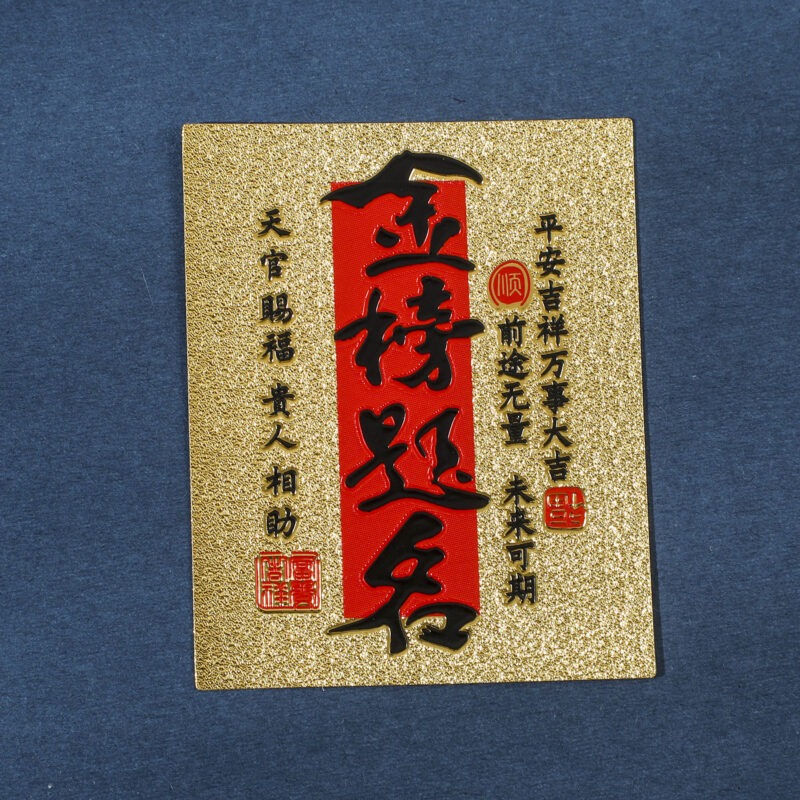 平安吉祥万事大吉
顺
前途无量 未来可期
金榜题名
天官賜福 貴人相助
富貴吉祥